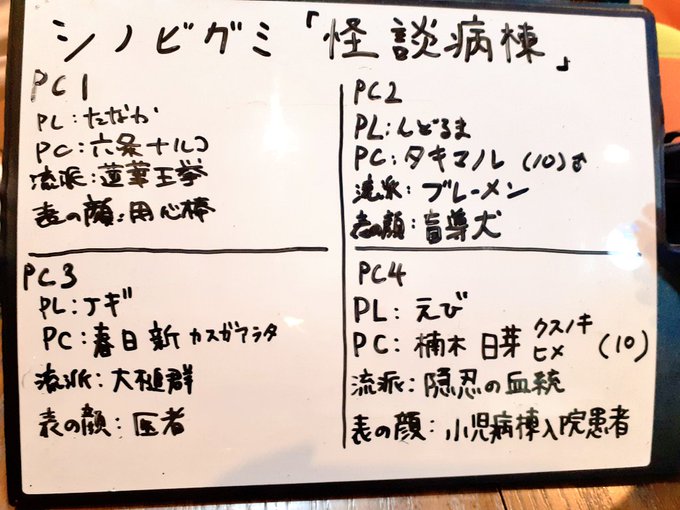 シノビグミ「怪談病棟」
PC1
PL:たなか
PC:六条ナルコ
流派:蓮華王拳
表の顔:用心棒
PC2
PL:んどるま
PC:タキマル (10)♂
流派:ブレーメン
表の顔:盲導犬
PC3
PL:ナギ
PC:春日 新 カスガアラタ
流派:大槌群
表の顔:医者
PC4
PL:えび
PC:楠木 日芽 クスノキ ヒメ (10)
流派:隠忍の血統
表の顔:小児病棟入院患者